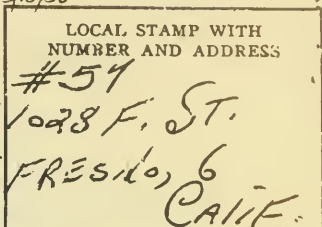 LOCAL STAMP WITH
NUMBER AND ADDRESS
#57
1028 F. ST.
FRESNO, 6
CALIF.